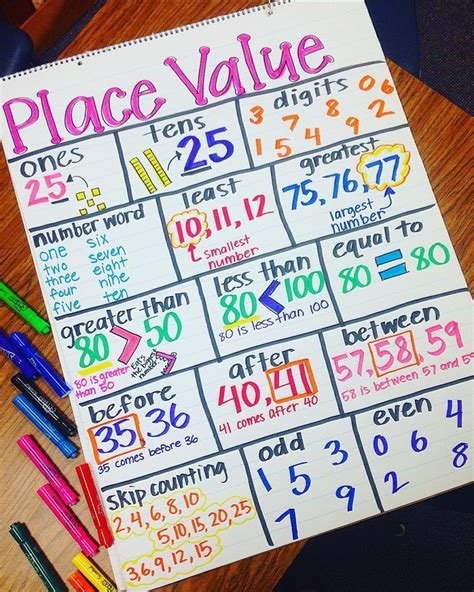 Place Value
ones
25
tens
25
digits
3 7 8 0 6
1 5 4 9 2
number word
one six
two seven
three eight
four nine
five ten
least
10, 11, 12
smallest
number
greatest
75, 76, 77
largest
number
greater than
80 > 50
80 is greater
than 50
Eats
the bigger
number
less than
80 < 100
80 is less than 100
equal to
80 = 80
before
35, 36
35 comes before 36
after
40, 41
41 comes after 40
between
57, 58, 59
58 is between 57 and 59
skip counting
2, 4, 6, 8, 10
5, 10, 15, 20, 25
3, 6, 9, 12, 15
odd
1 5 3
7 9
even
0 6 4
2 8